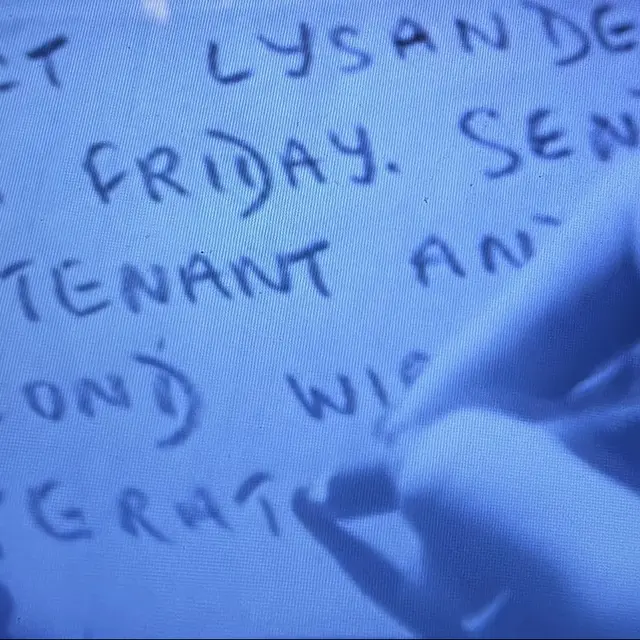 ET LYSANDE
FRIDAY. SEN
TENANT AN
OND WI
ERAT